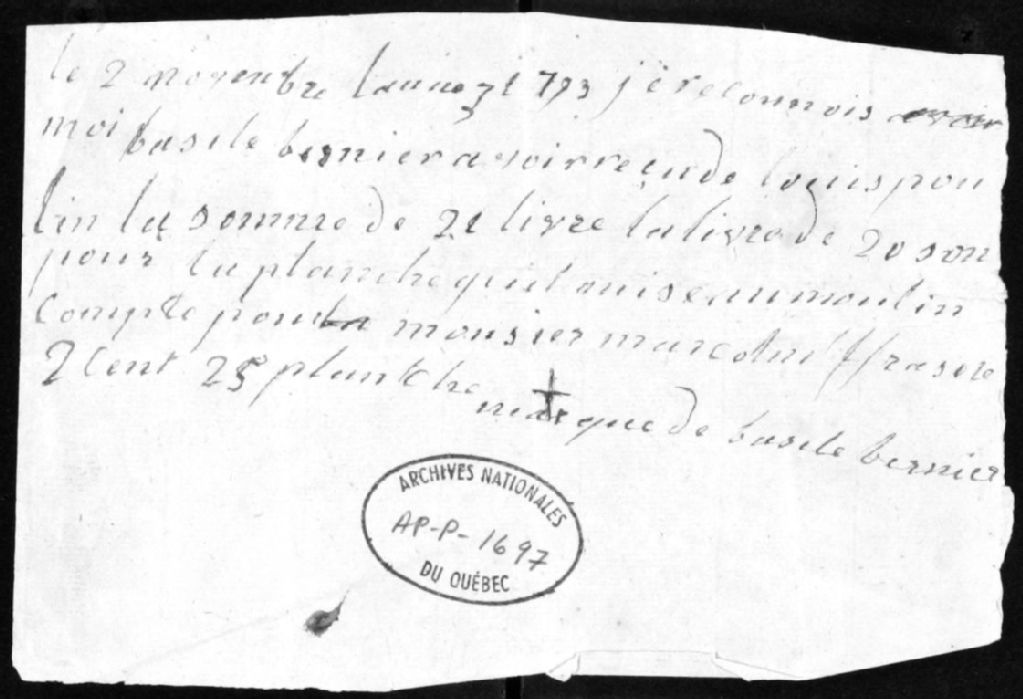 le 2 novembre lannezi 793 jereconnois avoir
moi basile bernier avoir reçu de louis pou
lin la somme de 21 livre la livre de 20 sou
pour la planche quil mise au moulin
Compte pour la monsier marc
2 Cent 25 plantche
marque de basile bernier
ARCHIVES NATIONALES
AP-P-1697
DU QUÉBEC